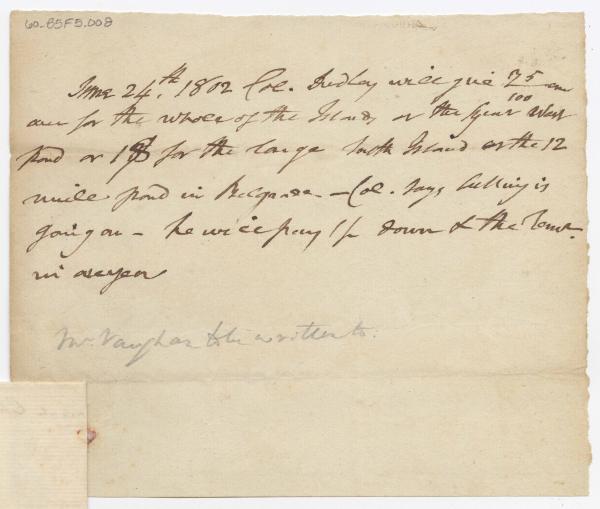 60-85F5.008
June 24th. 1802 Col. Dudley will give 75/100 an
acre for the whole of the Islands in the Great West
pond or 1$ for the large South Island in the 12
mile pond in Belgrade - Col. says cutting is
going on - he will pay 1/2 down & the Remr.
in a year
Mr. Vaughan to be written to.